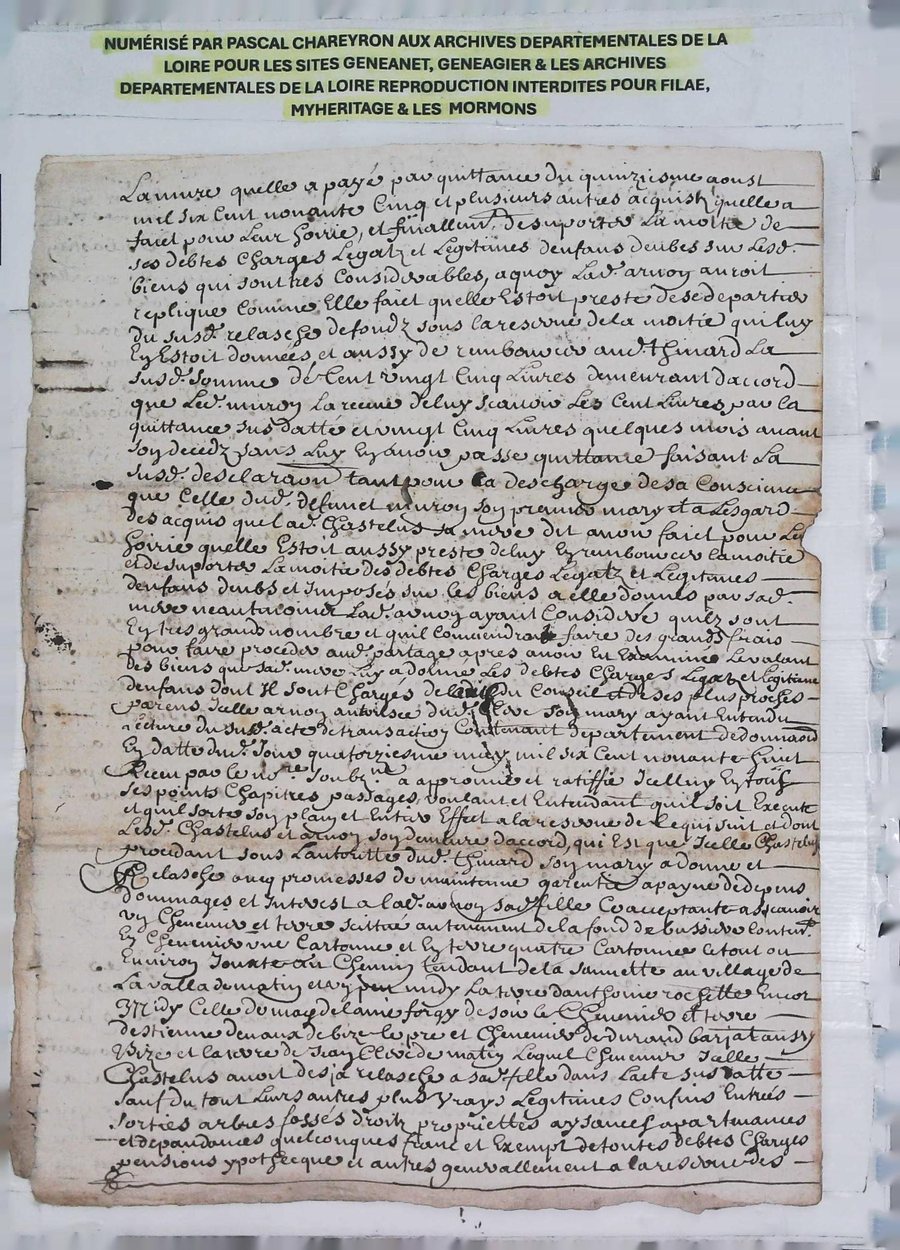 NUMÉRISÉ PAR PASCAL CHAREYRON AUX ARCHIVES DEPARTEMENTALES DE LA
LOIRE POUR LES SITES GENEANET, GENEAGIER & LES ARCHIVES
DEPARTEMENTALES DE LA LOIRE REPRODUCTION INTERDITES POUR FILAE,
MYHERITAGE & LES MORMONS
Lamure quelle a payé par quittance du quinziesme aoust
mil six Cent nonante Cinq et plusieurs autres acquistz quelle a
faict pour Leur hoirie, et finallemt. de suporter La moitie de
ses debtes Charges Legatz et Legitimes denfans deubes sur Lesd.
biens qui sont tres Considerables, a quoy Lad. arnoy auroit
replique Comme Elle faict quelle Estoit preste de se departir
du susd. relasche de fondz sous la reserve de la moitie qui luy
En Estoit données, et aussy de rembourcer aud. thinard La
susd. somme de Cent vingt Cinq Livres demeurant daccord
que Led. muron La receue de luy scavoir Les Cent Livres par la
quittance sus datte et vingt Cinq Livres quelques mois avant
son decedz sans Luy En avoir passe quittance faisant La
susd. desclaraon tant pour la descharge de sa Conscience
que Celle dud. deffunct muron son premier mary et a Lesgard
des acquis que lad. Chastelus sa mere dit avoir faict pour Le
hoirie quelle Estoit aussy preste de luy En rembourcer la moitie
et de suporter La moitie des debtes Charges Legatz et Legitimes
denfans deubs et Imposes sur les biens a elle donnes par sad.
mere neantmoins Lad. arnoy ayant Considere quilz sont
En tres grand nombre et quil Conviendroit faire des grands frais
pour faire proceder aud. partage apres avoir En Examiné Levalant
des biens que sad. mere Luy a donné Les debtes Charges Legatz et legitime
denfans dont Il sont Chargés de du Conseil de ses plus proches
parens Icelle arnoy autorisee dud. Clere son mary ayant Entendu
lecture du susd. acte de transaction Contenant departement de donnaon
En datte du d. Jour quatorziesme may mil six Cent nonante huict
Receu par le nore soubzne a approuvé et ratiffié Icelluy En touts
ses points Chapitres passages, voulant et Entendant quil soit Execute
et quil sorte son plain et Entier Effect a la reserve de ce qui suit et dont
Lesd. Chastelus et arnoy son demeure daccord, qui Est que Icelle Chastelus
procedant sous Lautoritte dud. thinard son mary a donne et
Relasche avec promesses de maintenue garentie a payne de depens
dommages et Interest a lad. arnoy sad. fille Ce acceptante assavoir
un Chenevier et terre scittué au tenement de la fond de bussiere Conten.
En Chenevier une Cartonne et En terre quatre Cartonnes le tout ou
Environ Jouxte au Chemin tendant de la sannette au village de
La valla de matin et un peu midy La terre danthoine rochette Encor
Midy Celle du may de laine forgy de soir le Chenevier et terre
destienne devaux de bize le pre et Chenevier de durand barjat aussy
Bize et la terre de Jean Clere de matin Lequel Chenevier Icelle
Chastelus avoit desja relasche a sad. fille dans Lacte sus datte
sauf du tout Leurs autres plus vrays Legitimes Confins Entrées
sorties arbres fossés droitz proprietés aysances apartenances
et dependances quelconques franc et Exempt de toutes debtes Charges
pensions ypothecque et autres generallement a la reserve des